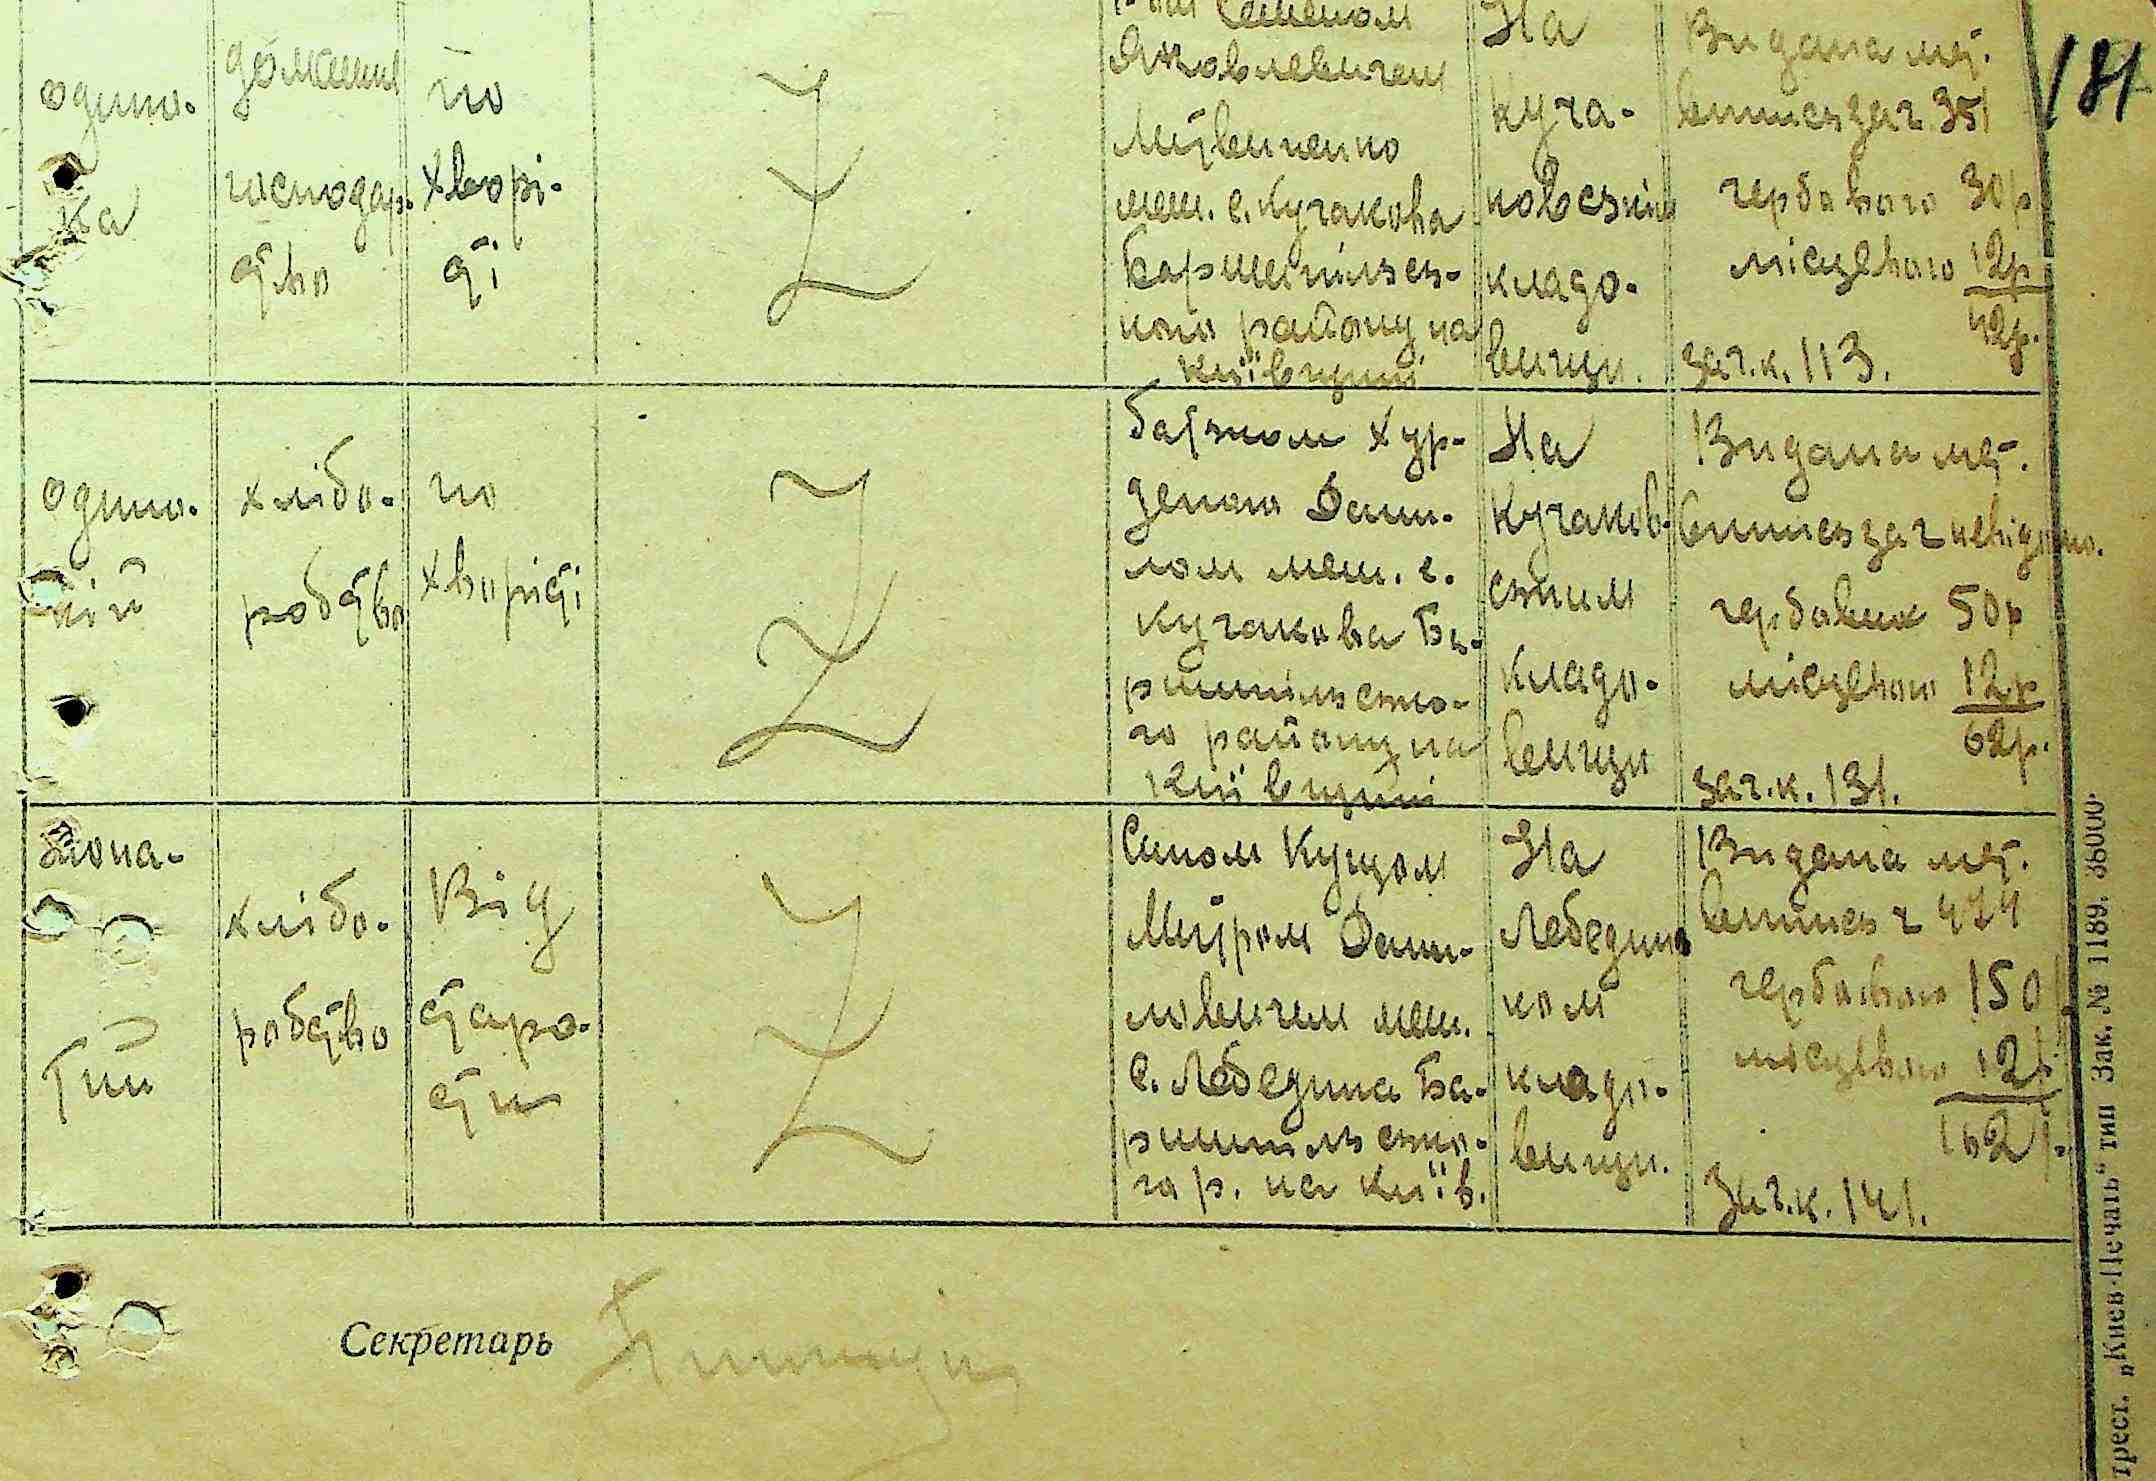 181
одино-
ка
домашнє
господар-
ство
по
хворі-
сті
Семеном
Яковлевичем
Литвиненко
меш. с. Кучакова
Баришпільсь-
кого району на
Київщині
На
куча-
ковським
кладо-
вищи.
Видана мет.
виписьзач. 351
гербового 30р
місцевого 12р
42р.
зач.к. 113.
одино-
кий
хлібо-
робство
по
хворісті
батьком Кур-
деною Дани-
лом меш. с.
Кучакова Ба-
ришпільсько-
го району на
Київщині
На
Кучаков-
ським
кладо-
вищи
Видана мет.
виписьзач невідомо.
гербових 50р
місцевого 12р
62р.
зач.к. 131.
жона-
тий
хлібо-
робство
Від
старо-
сти
Сином Куцом
Дани-
ловичем меш.
с. Лебедина Ба-
ришпільсько-
го р. на Київ.
На
Лебединс
ком
кладо-
вищи.
Видана мет.
випись ч 474
гербового 150р
місцевого 12р
162р.
Зач.к. 141.
Секретарь
трест. „Киев-Печать“ тип Зак. № 1189. 35000·